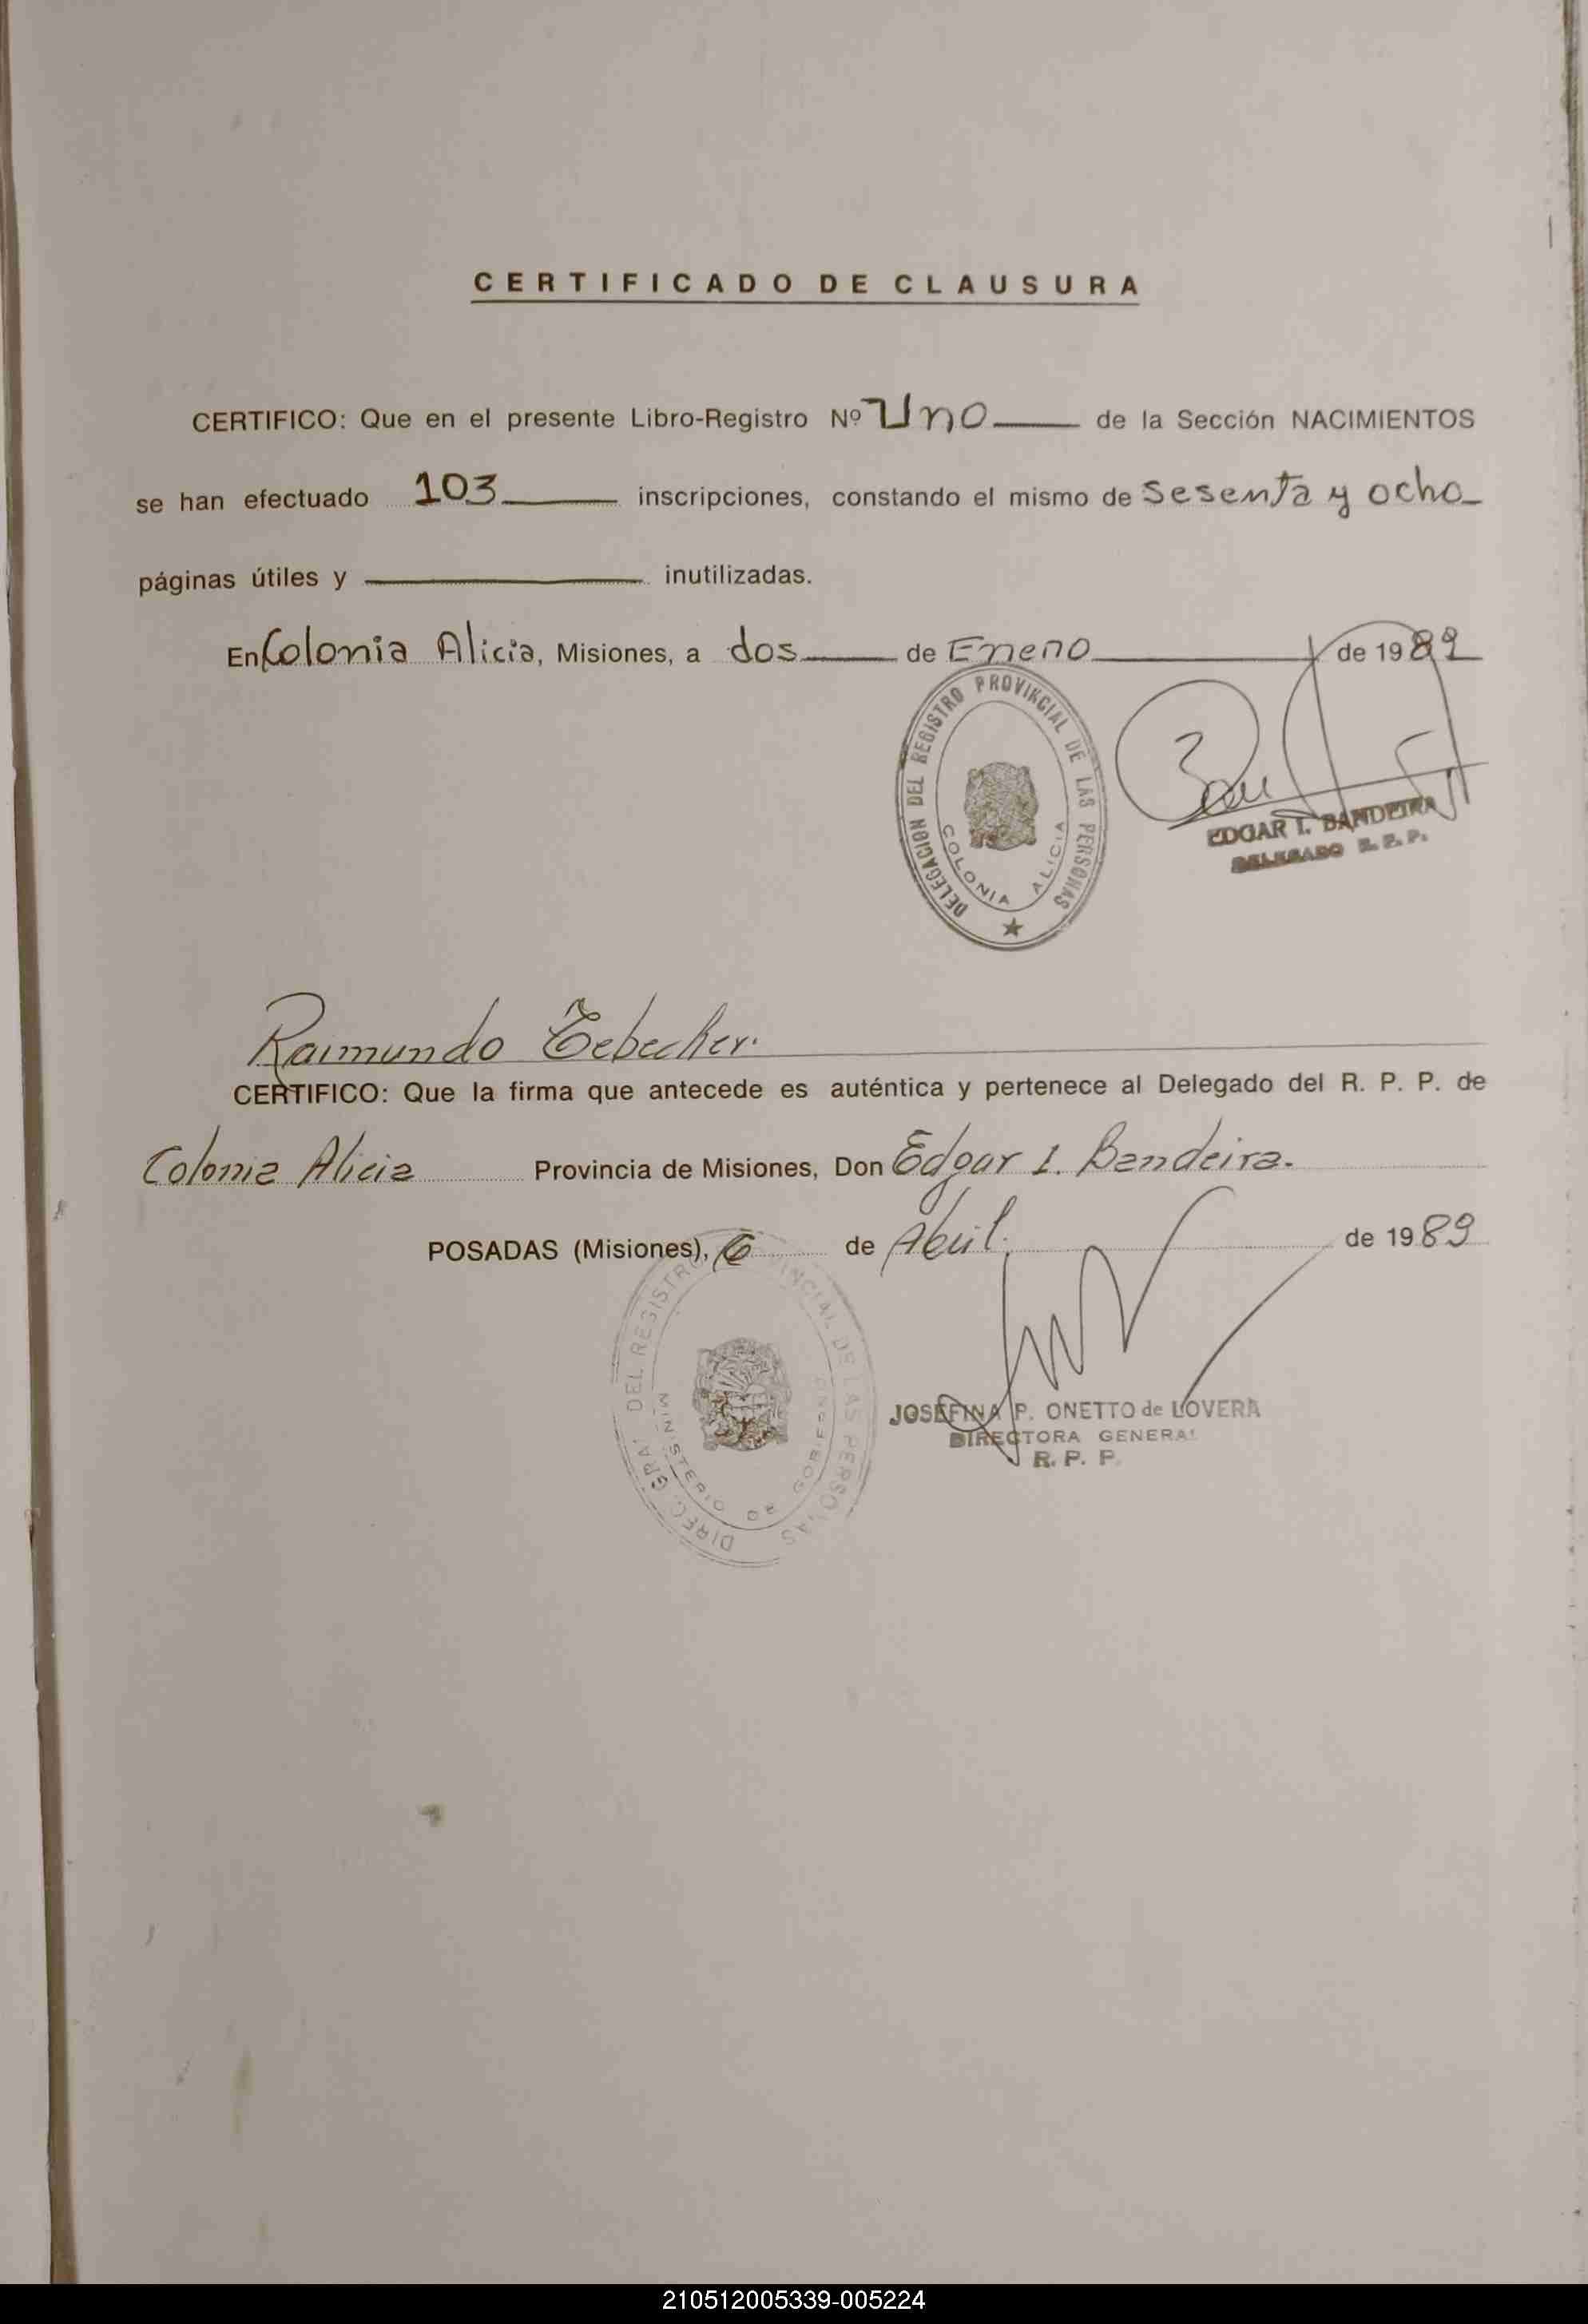 CERTIFICADO DE CLAUSURA
CERTIFICO: Que en el presente Libro-Registro Nº Uno de la Sección NACIMIENTOS
se han efectuado 103 inscripciones, constando el mismo de sesenta y ocho
páginas útiles y inutilizadas.
En Colonia Alicia, Misiones, a dos de Enero de 1989
DELEGACION DEL REGISTRO PROVINCIAL DE LAS PERSONAS
COLONIA ALICIA
EDGAR I. BANDEIRA
DELEGADO R. P. P.
Raimundo
CERTIFICO: Que la firma que antecede es auténtica y pertenece al Delegado del R. P. P. de
Colonia Alicia Provincia de Misiones, Don Edgar I. Bandeira.
POSADAS (Misiones), 6 de Abril. de 1989
DIREC. GRAL DEL REGISTRO PROVINCIAL DE LAS PERSONAS
MINISTERIO DE GOBIERNO
JOSEFINA P. ONETTO de LOVERA
DIRECTORA GENERAL
R. P. P.
210512005339-005224